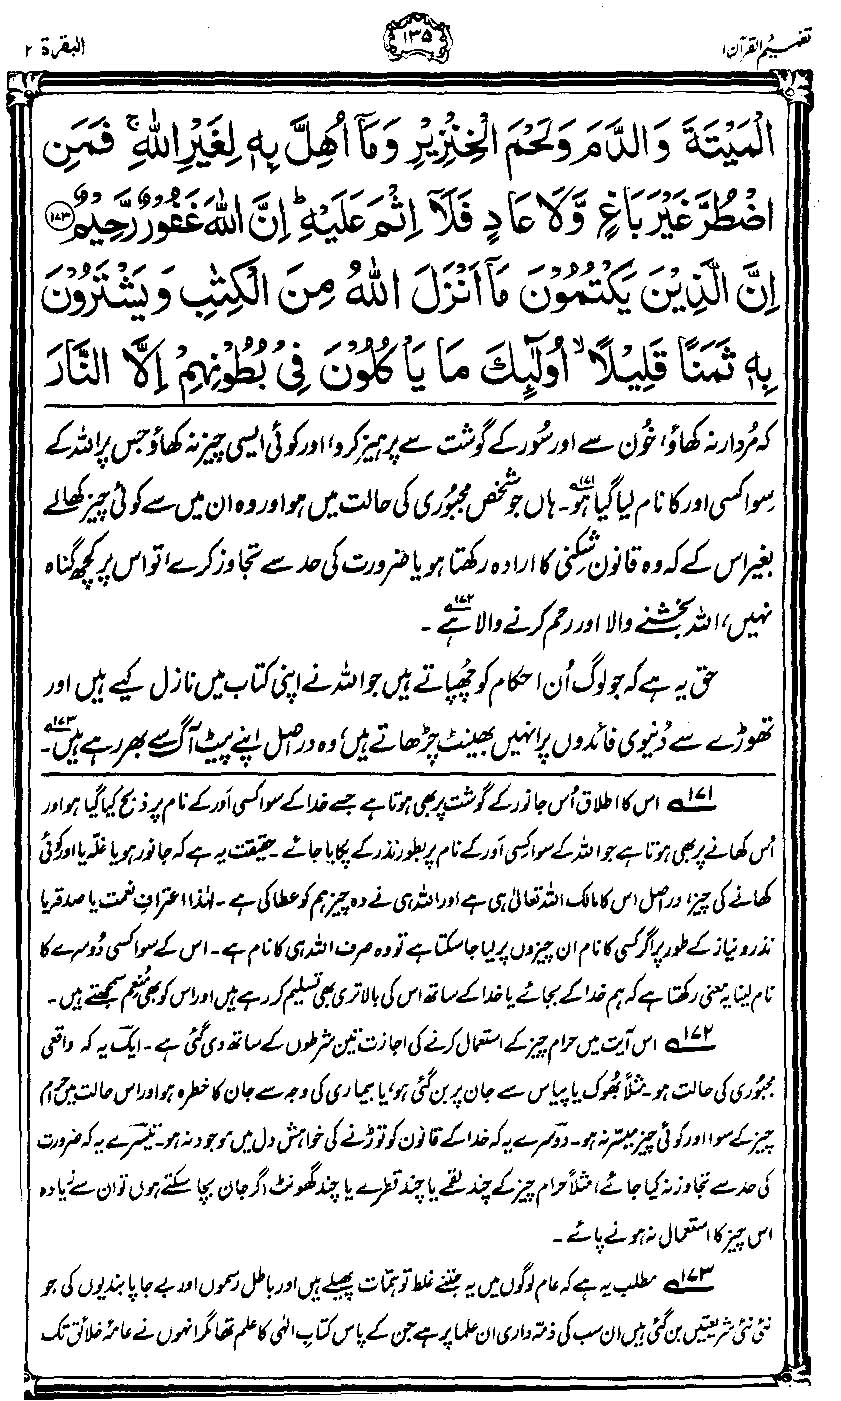 تفہیم القرآن ۱
۱۳۵
البقرۃ ۲
الْمَيْتَةَ وَالدَّمَ وَلَحْمَ الْخِنْزِيْرِ وَمَآ اُهِلَّ بِهٖ لِغَيْرِ اللّٰهِ ۚ فَمَنِ
اضْطُرَّ غَيْرَ بَاغٍ وَّلَا عَادٍ فَلَآ اِثْمَ عَلَيْهِ ؕ اِنَّ اللّٰهَ غَفُوْرٌ رَّحِيْمٌ ۱۷۳
اِنَّ الَّذِيْنَ يَكْتُمُوْنَ مَآ اَنْزَلَ اللّٰهُ مِنَ الْكِتٰبِ وَيَشْتَرُوْنَ
بِهٖ ثَمَنًا قَلِيْلًا ۙ اُولٰٓئِكَ مَا يَاْكُلُوْنَ فِيْ بُطُوْنِهِمْ اِلَّا النَّارَ
کہ مُردار نہ کھاؤ، خُون سے اور سُور کے گوشت سے پرہیز کرو، اور کوئی ایسی چیز نہ کھاؤ جس پر اللہ کے
سِوا کسی اور کا نام لیا گیا ہو۱۷۱۔ ہاں جو شخص مجبُوری کی حالت میں ہو اور وہ ان میں سے کوئی چیز کھالے
بغیر اس کے کہ وہ قانون شکنی کا ارادہ رکھتا ہو یا ضرورت کی حد سے تجاوز کرے، تو اس پر کچھ گناہ
نہیں، اللہ بخشنے والا اور رحم کرنے والا ہے۱۷۲۔
حق یہ ہے کہ جو لوگ اُن احکام کو چُھپاتے ہیں جو اللہ نے اپنی کتاب میں نازل کیے ہیں اور
تھوڑے سے دُنیوی فائدوں پر انہیں بھینٹ چڑھاتے ہیں، وہ دراصل اپنے پیٹ آگ سے بھر رہے ہیں۱۷۳۔
۱۷۱ اس کا اطلاق اُس جانور کے گوشت پر بھی ہوتا ہے جسے خدا کے سوا کسی اَور کے نام پر ذبح کیا گیا ہو اور
اُس کھانے پر بھی ہوتا ہے جو اللہ کے سوا کسی اَور کے نام پر بطور نذر کے پکایا جائے۔ حقیقت یہ ہے کہ جانور ہو یا غلّہ یا اور کوئی
کھانے کی چیز، دراصل اس کا مالک اللہ تعالیٰ ہی ہے اور اللہ ہی نے وہ چیز ہم کو عطا کی ہے۔ لہٰذا اعترافِ نعمت یا صدقہ یا
نذر و نیاز کے طور پر اگر کسی کا نام ان چیزوں پر لیا جا سکتا ہے تو وہ صرف اللہ ہی کا نام ہے۔ اس کے سوا کسی دُوسرے کا
نام لینا یہ معنی رکھتا ہے کہ ہم خدا کے بجائے یا خدا کے ساتھ اس کی بالاتری بھی تسلیم کر رہے ہیں اور اس کو بھی مُنعِم سمجھتے ہیں۔
۱۷۲ اس آیت میں حرام چیز کے استعمال کرنے کی اجازت تین شرطوں کے ساتھ دی گئی ہے۔ ایک یہ کہ واقعی
مجبُوری کی حالت ہو۔ مثلاً بُھوک یا پیاس سے جان پر بن گئی ہو، یا بیماری کی وجہ سے جان کا خطرہ ہو اور اس حالت میں حرام
چیز کے سوا اور کوئی چیز میسّر نہ ہو۔ دوسرے یہ کہ خدا کے قانون کو توڑنے کی خواہش دل میں موجود نہ ہو۔ تیسرے یہ کہ ضرورت
کی حد سے تجاوز نہ کیا جائے، مثلاً حرام چیز کے چند لقمے یا چند قطرے یا چند گھونٹ اگر جان بچا سکتے ہوں تو ان سے زیادہ
اس چیز کا استعمال نہ ہونے پائے۔
۱۷۳ مطلب یہ ہے کہ عام لوگوں میں یہ جتنے غلط توہمّات پھیلے ہیں اور باطل رسموں اور بے جا پابندیوں کی جو
نئی نئی شریعتیں بن گئی ہیں ان سب کی ذمّہ داری ان علما پر ہے جن کے پاس کتابِ الٰہی کا علم تھا مگر انہوں نے عامۂ خلائق تک